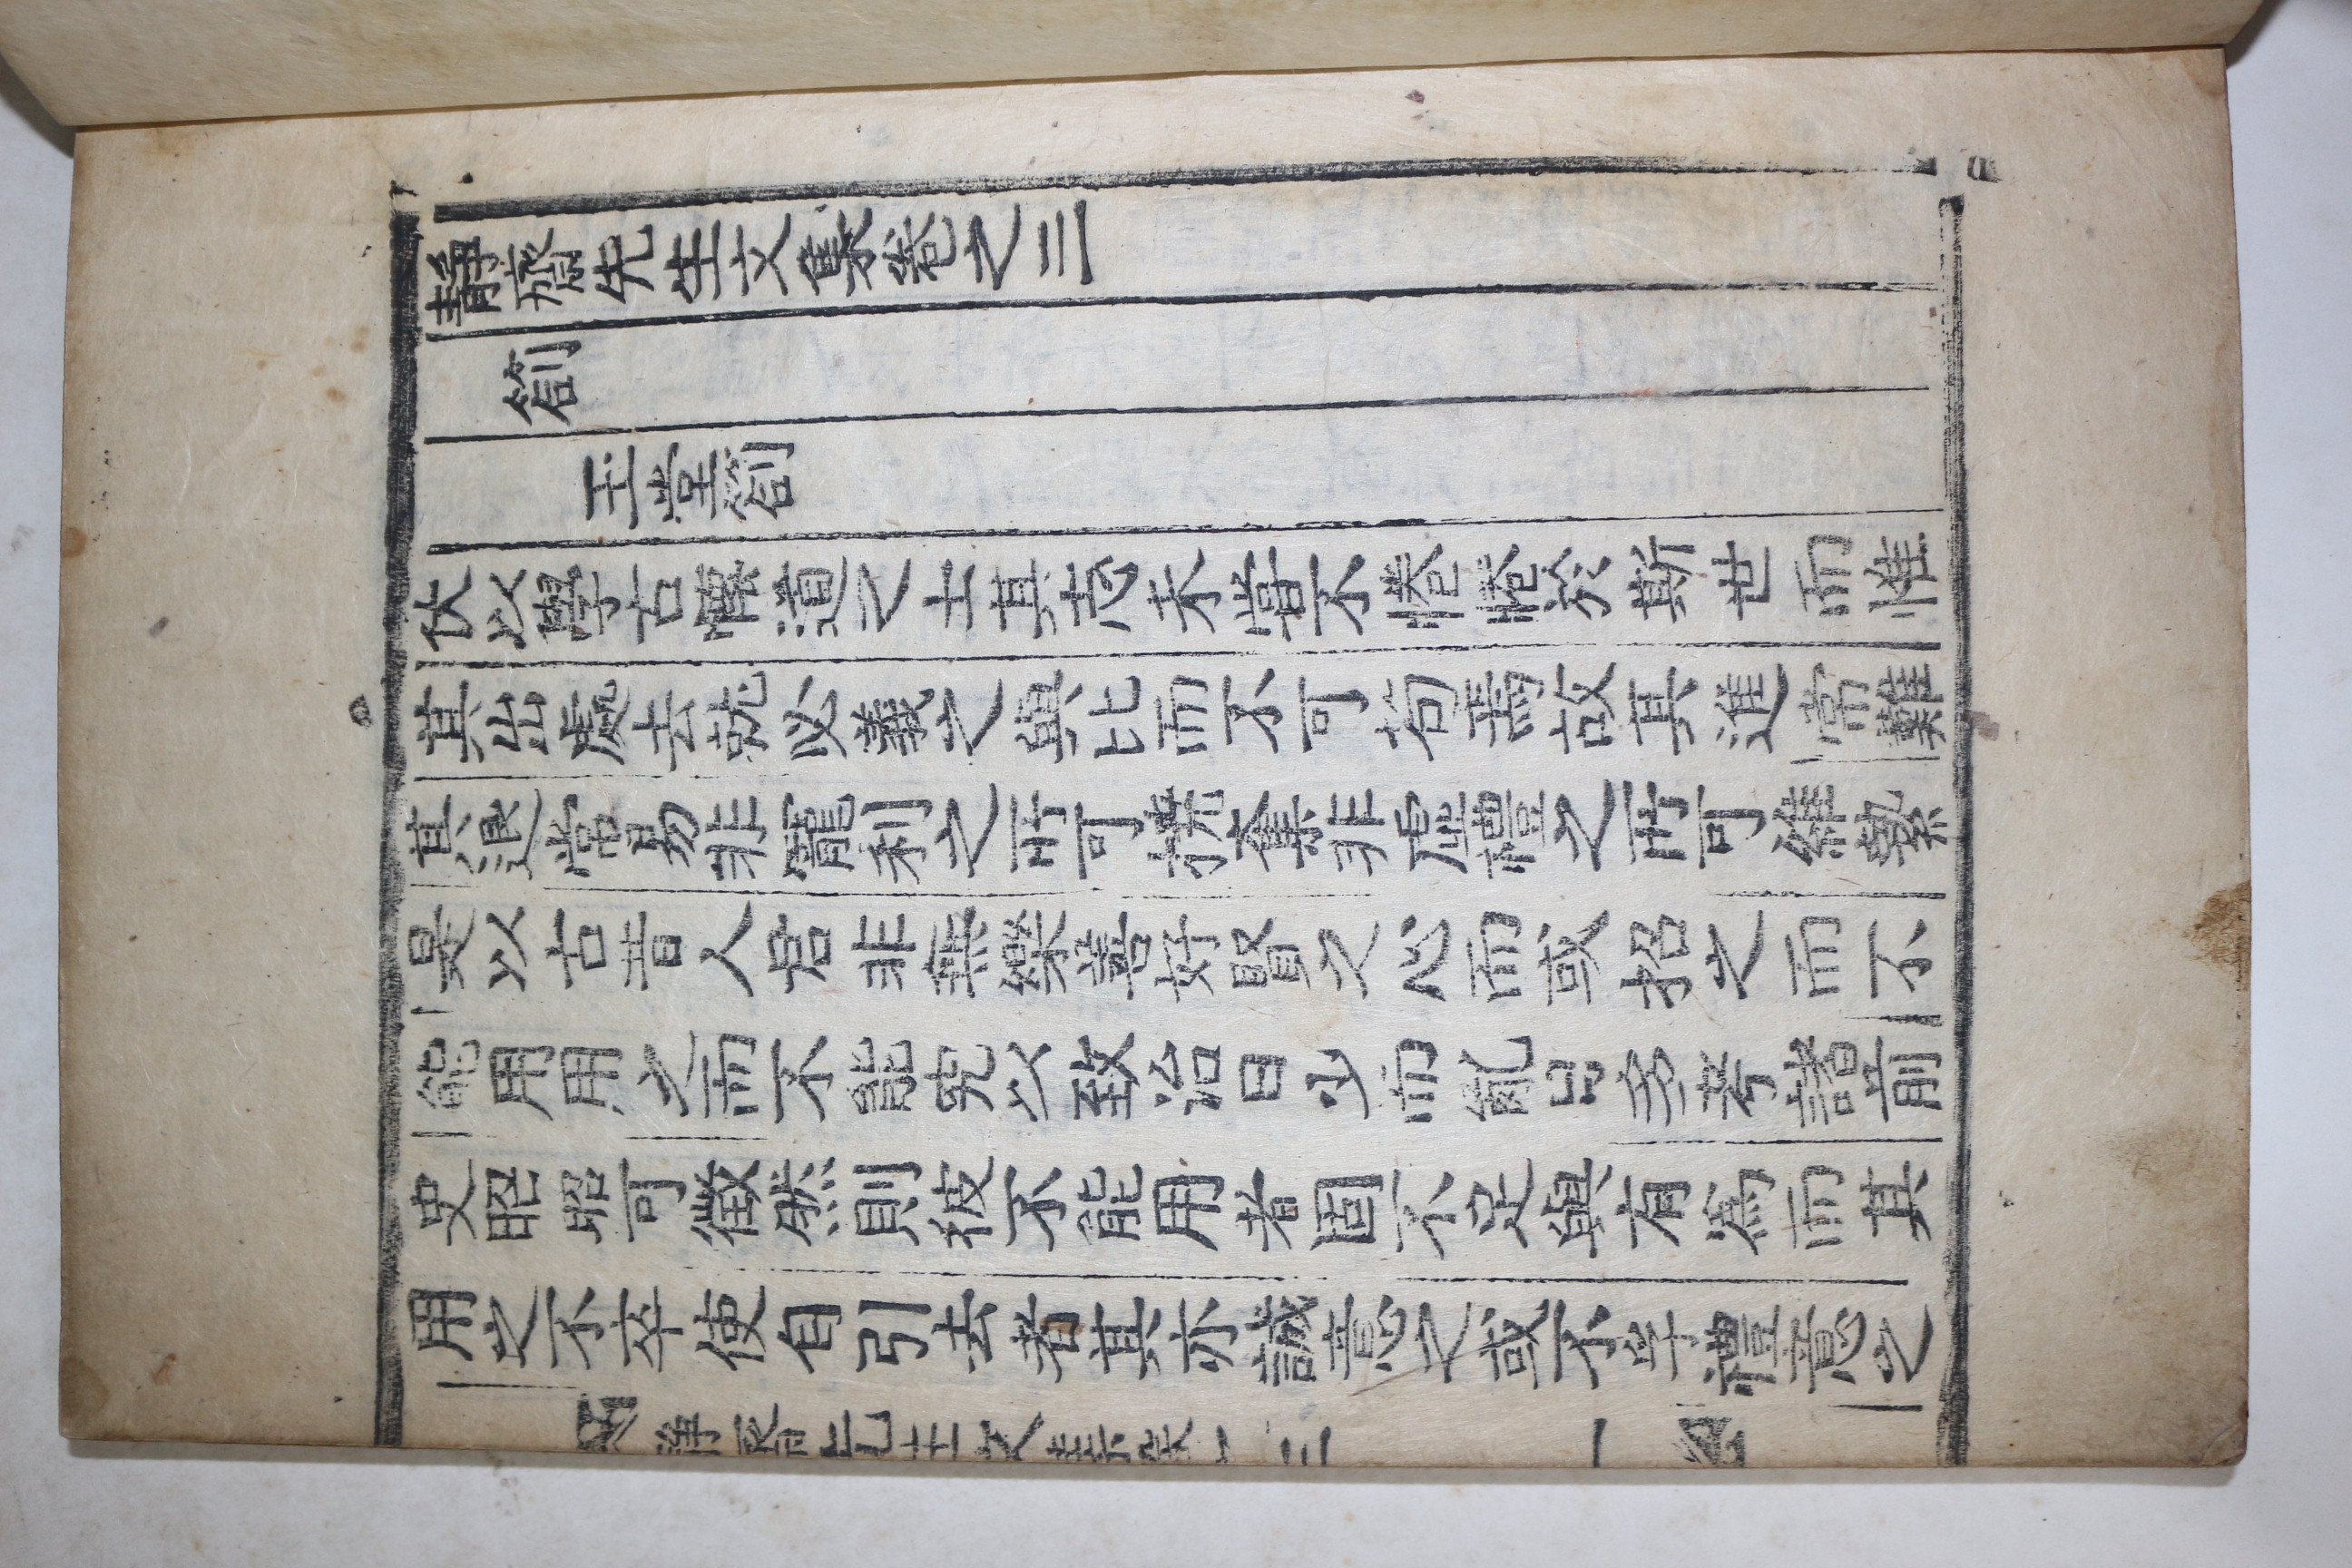 靜齋先生文集卷之三
箚
玉堂箚
伏以學古懷道之士其志未嘗不惓惓於斯世而惟
其出處去就必義之與比而不可苟焉故其進常難
其退常易非寵利之所可撓奪非虛禮之所可維縶
是以古昔人君非無樂善好賢之心而或招之而不
能用用之而不能究以致治日少而亂日多考諸前
史昭昭可徵然則彼不能用者固不足與有爲而其
用之不卒使自引去者其亦誠意之或不孚禮意之
靜齋先生文集卷之三 一